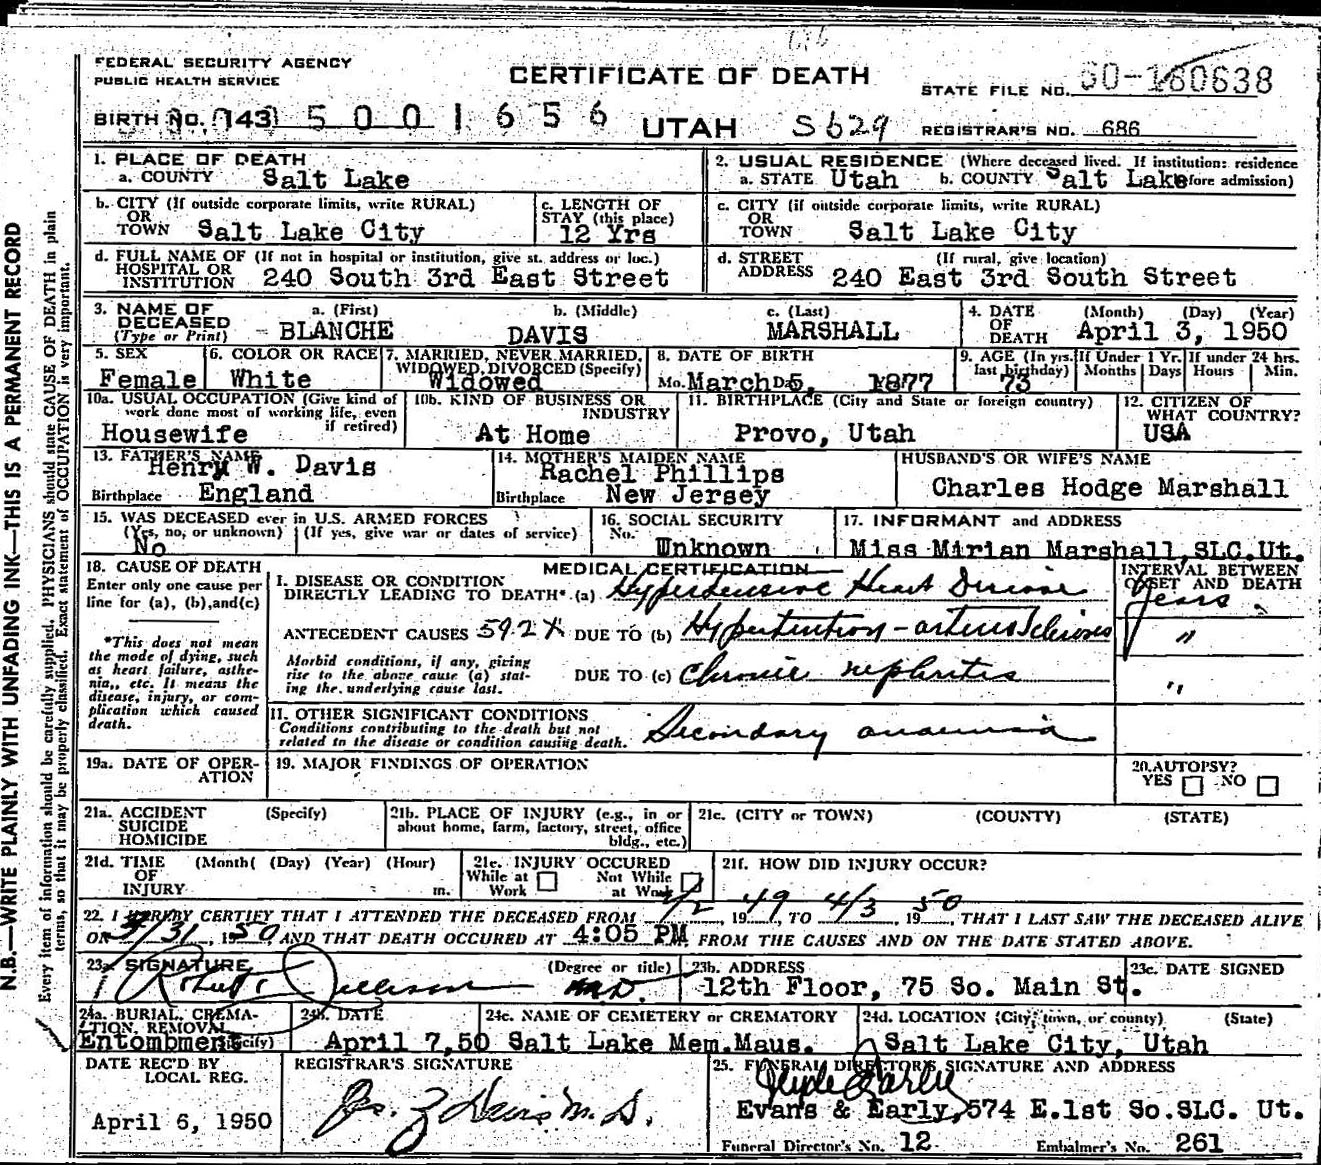 FEDERAL SECURITY AGENCY
PUBLIC HEALTH SERVICE
CERTIFICATE OF DEATH
STATE FILE NO. 50-180638
BIRTH NO. 143 5 0 0 1 6 5 6
UTAH S629
REGISTRAR'S NO. 686
1. PLACE OF DEATH
a. COUNTY Salt Lake
2. USUAL RESIDENCE (Where deceased lived. If institution: residence
a. STATE Utah b. COUNTY Salt Lake fore admission)
b. CITY (If outside corporate limits, write RURAL)
OR
TOWN Salt Lake City
c. LENGTH OF
STAY (this place)
12 Yrs
c. CITY (if outside corporate limits, write RURAL)
OR
TOWN Salt Lake City
d. FULL NAME OF (If not in hospital or institution, give st. address or loc.)
HOSPITAL OR
INSTITUTION 240 South 3rd East Street
d. STREET (If rural, give location)
ADDRESS 240 East 3rd South Street
3. NAME OF DECEASED (Type or Print)
a. (First) b. (Middle) c. (Last)
BLANCHE DAVIS MARSHALL
4. DATE OF DEATH (Month) (Day) (Year)
April 3, 1950
5. SEX
Female
6. COLOR OR RACE
White
7. MARRIED, NEVER MARRIED,
WIDOWED, DIVORCED (Specify)
Widowed
8. DATE OF BIRTH
Mo. March Da. 5, 1877
9. AGE (In yrs. last birthday)
73
If Under 1 Yr.
Months Days
If under 24 hrs.
Hours Min.
10a. USUAL OCCUPATION (Give kind of
work done most of working life, even
if retired)
Housewife
10b. KIND OF BUSINESS OR
INDUSTRY
At Home
11. BIRTHPLACE (City and State or foreign country)
Provo, Utah
12. CITIZEN OF
WHAT COUNTRY?
USA
13. FATHER'S NAME
Henry W. Davis
Birthplace England
14. MOTHER'S MAIDEN NAME
Rachel Phillips
Birthplace New Jersey
HUSBAND'S OR WIFE'S NAME
Charles Hodge Marshall
15. WAS DECEASED ever in U.S. ARMED FORCES
(Yes, no, or unknown) (If yes, give war or dates of service)
No
16. SOCIAL SECURITY
No. Unknown
17. INFORMANT and ADDRESS
Miss Mirian Marshall, SLC.Ut.
18. CAUSE OF DEATH
Enter only one cause per
line for (a), (b), and (c)
*This does not mean
the mode of dying, such
as heart failure, asthe-
nia,, etc. It means the
disease, injury, or com-
plication which caused
death.
MEDICAL CERTIFICATION
INTERVAL BETWEEN
ONSET AND DEATH
I. DISEASE OR CONDITION
DIRECTLY LEADING TO DEATH* (a) Hypertensive Heart Disease Years
ANTECEDENT CAUSES 592X DUE TO (b) Hypertention - arteriosclerosis "
Morbid conditions, if any, giving
rise to the above cause (a) stat-
ing the underlying cause last.
DUE TO (c) Chronic nephritis "
II. OTHER SIGNIFICANT CONDITIONS
Conditions contributing to the death but not
related to the disease or condition causing death.
Secondary anaemia
19a. DATE OF OPER-
ATION
19. MAJOR FINDINGS OF OPERATION
20. AUTOPSY?
YES NO
21a. ACCIDENT (Specify)
SUICIDE
HOMICIDE
21b. PLACE OF INJURY (e.g., in or
about home, farm, factory, street, office
bldg., etc.)
21c. (CITY or TOWN) (COUNTY) (STATE)
21d. TIME (Month( (Day) (Year) (Hour)
OF
INJURY m.
21e. INJURY OCCURED
While at Work Not While at Work
21f. HOW DID INJURY OCCUR?
22. I HEREBY CERTIFY THAT I ATTENDED THE DECEASED FROM 7/2, 1949 TO 4/3, 1950 THAT I LAST SAW THE DECEASED ALIVE
ON 3/31, 1950, AND THAT DEATH OCCURED AT 4:05 PM FROM THE CAUSES AND ON THE DATE STATED ABOVE.
23a. SIGNATURE (Degree or title)
M.D.
23b. ADDRESS
12th Floor, 75 So. Main St.
23c. DATE SIGNED
24a. BURIAL, CREMA-
TION, REMOVAL
(Specify)
Entombment
24b. DATE
April 7,50
24c. NAME OF CEMETERY or CREMATORY
Salt Lake Mem.Maus.
24d. LOCATION (City, town, or county) (State)
Salt Lake City, Utah
DATE REC'D BY
LOCAL REG.
April 6, 1950
REGISTRAR'S SIGNATURE
25. FUNERAL DIRECTOR'S SIGNATURE AND ADDRESS
Evans & Early, 574 E.1st So.SLC. Ut.
Funeral Director's No. 12 Embalmer's No. 261
N.B.—WRITE PLAINLY WITH UNFADING INK—THIS IS A PERMANENT RECORD
Every item of information should be carefully supplied. PHYSICIANS should state CAUSE OF DEATH in plain
terms, so that it may be properly classified. Exact statement of OCCUPATION is very important.